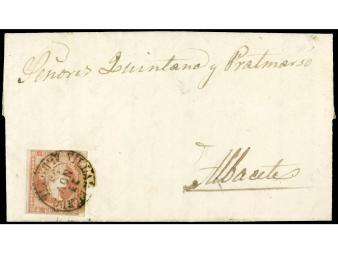 Señores Quintana y Pratmarso
Albacete